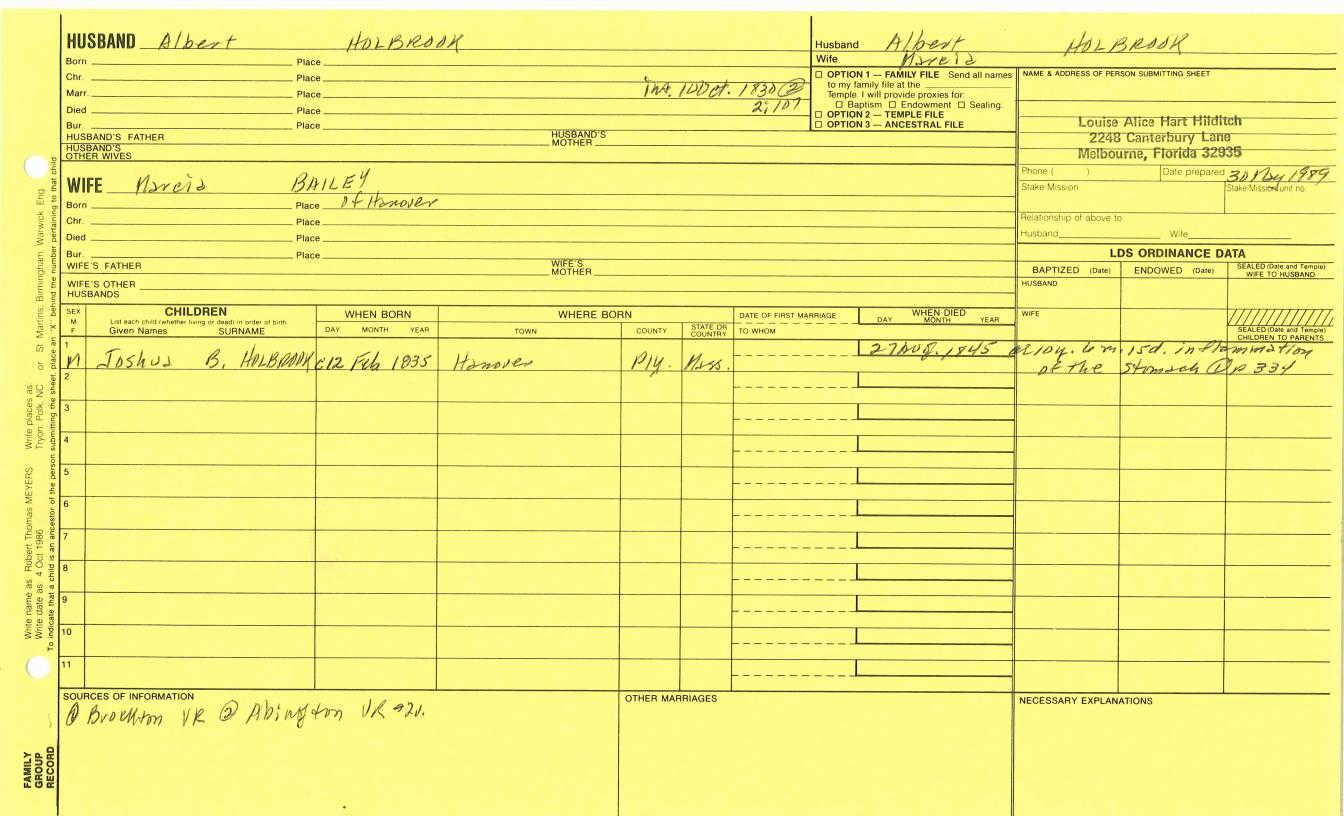 HUSBAND Albert HOLBROOK
Born Place
Chr. Place
Marr. Place int. 10 Oct. 1830 ②
Died Place 2:107
Bur. Place
HUSBAND'S FATHER HUSBAND'S MOTHER
HUSBAND'S OTHER WIVES
WIFE Marcia BAILEY
Born Place of Hanover
Chr. Place
Died Place
Bur. Place
WIFE'S FATHER WIFE'S MOTHER
WIFE'S OTHER HUSBANDS
Husband Albert HOLBROOK
Wife Marcia
☐ OPTION 1 — FAMILY FILE Send all names
to my family file at the
Temple. I will provide proxies for:
☐ Baptism ☐ Endowment ☐ Sealing.
☐ OPTION 2 — TEMPLE FILE
☐ OPTION 3 — ANCESTRAL FILE
NAME & ADDRESS OF PERSON SUBMITTING SHEET
Louise Alice Hart Hilditch
2248 Canterbury Lane
Melbourne, Florida 32935
Phone ( ) Date prepared 30 May 1989
Stake Mission Stake/Mission unit no.
Relationship of above to
Husband Wife
LDS ORDINANCE DATA
BAPTIZED (Date) ENDOWED (Date) SEALED (Date and Temple) WIFE TO HUSBAND
HUSBAND
WIFE
SEALED (Date and Temple) CHILDREN TO PARENTS
SEX M F
CHILDREN
List each child (whether living or dead) in order of birth
Given Names SURNAME
WHEN BORN
DAY MONTH YEAR
WHERE BORN
TOWN COUNTY STATE OR COUNTRY
DATE OF FIRST MARRIAGE
TO WHOM
WHEN DIED
DAY MONTH YEAR
1 27 Aug. 1845 ae 10y. 6m. 15d. inflammation
M Joshua B. HOLBROOK c12 Feb 1835 Hanover Ply. Mass. of the stomach ① p 334
2
3
4
5
6
7
8
9
10
11
SOURCES OF INFORMATION
① Brockton VR ② Abington VR
OTHER MARRIAGES
NECESSARY EXPLANATIONS
Write name as Robert Thomas MEYERS Write places as Tryon, Polk, NC or St Martins, Birmingham, Warwick, Eng
Write date as 4 Oct 1986
To indicate that a child is an ancestor of the person submitting the sheet, place an "X" behind the number pertaining to that child
FAMILY
GROUP
RECORD